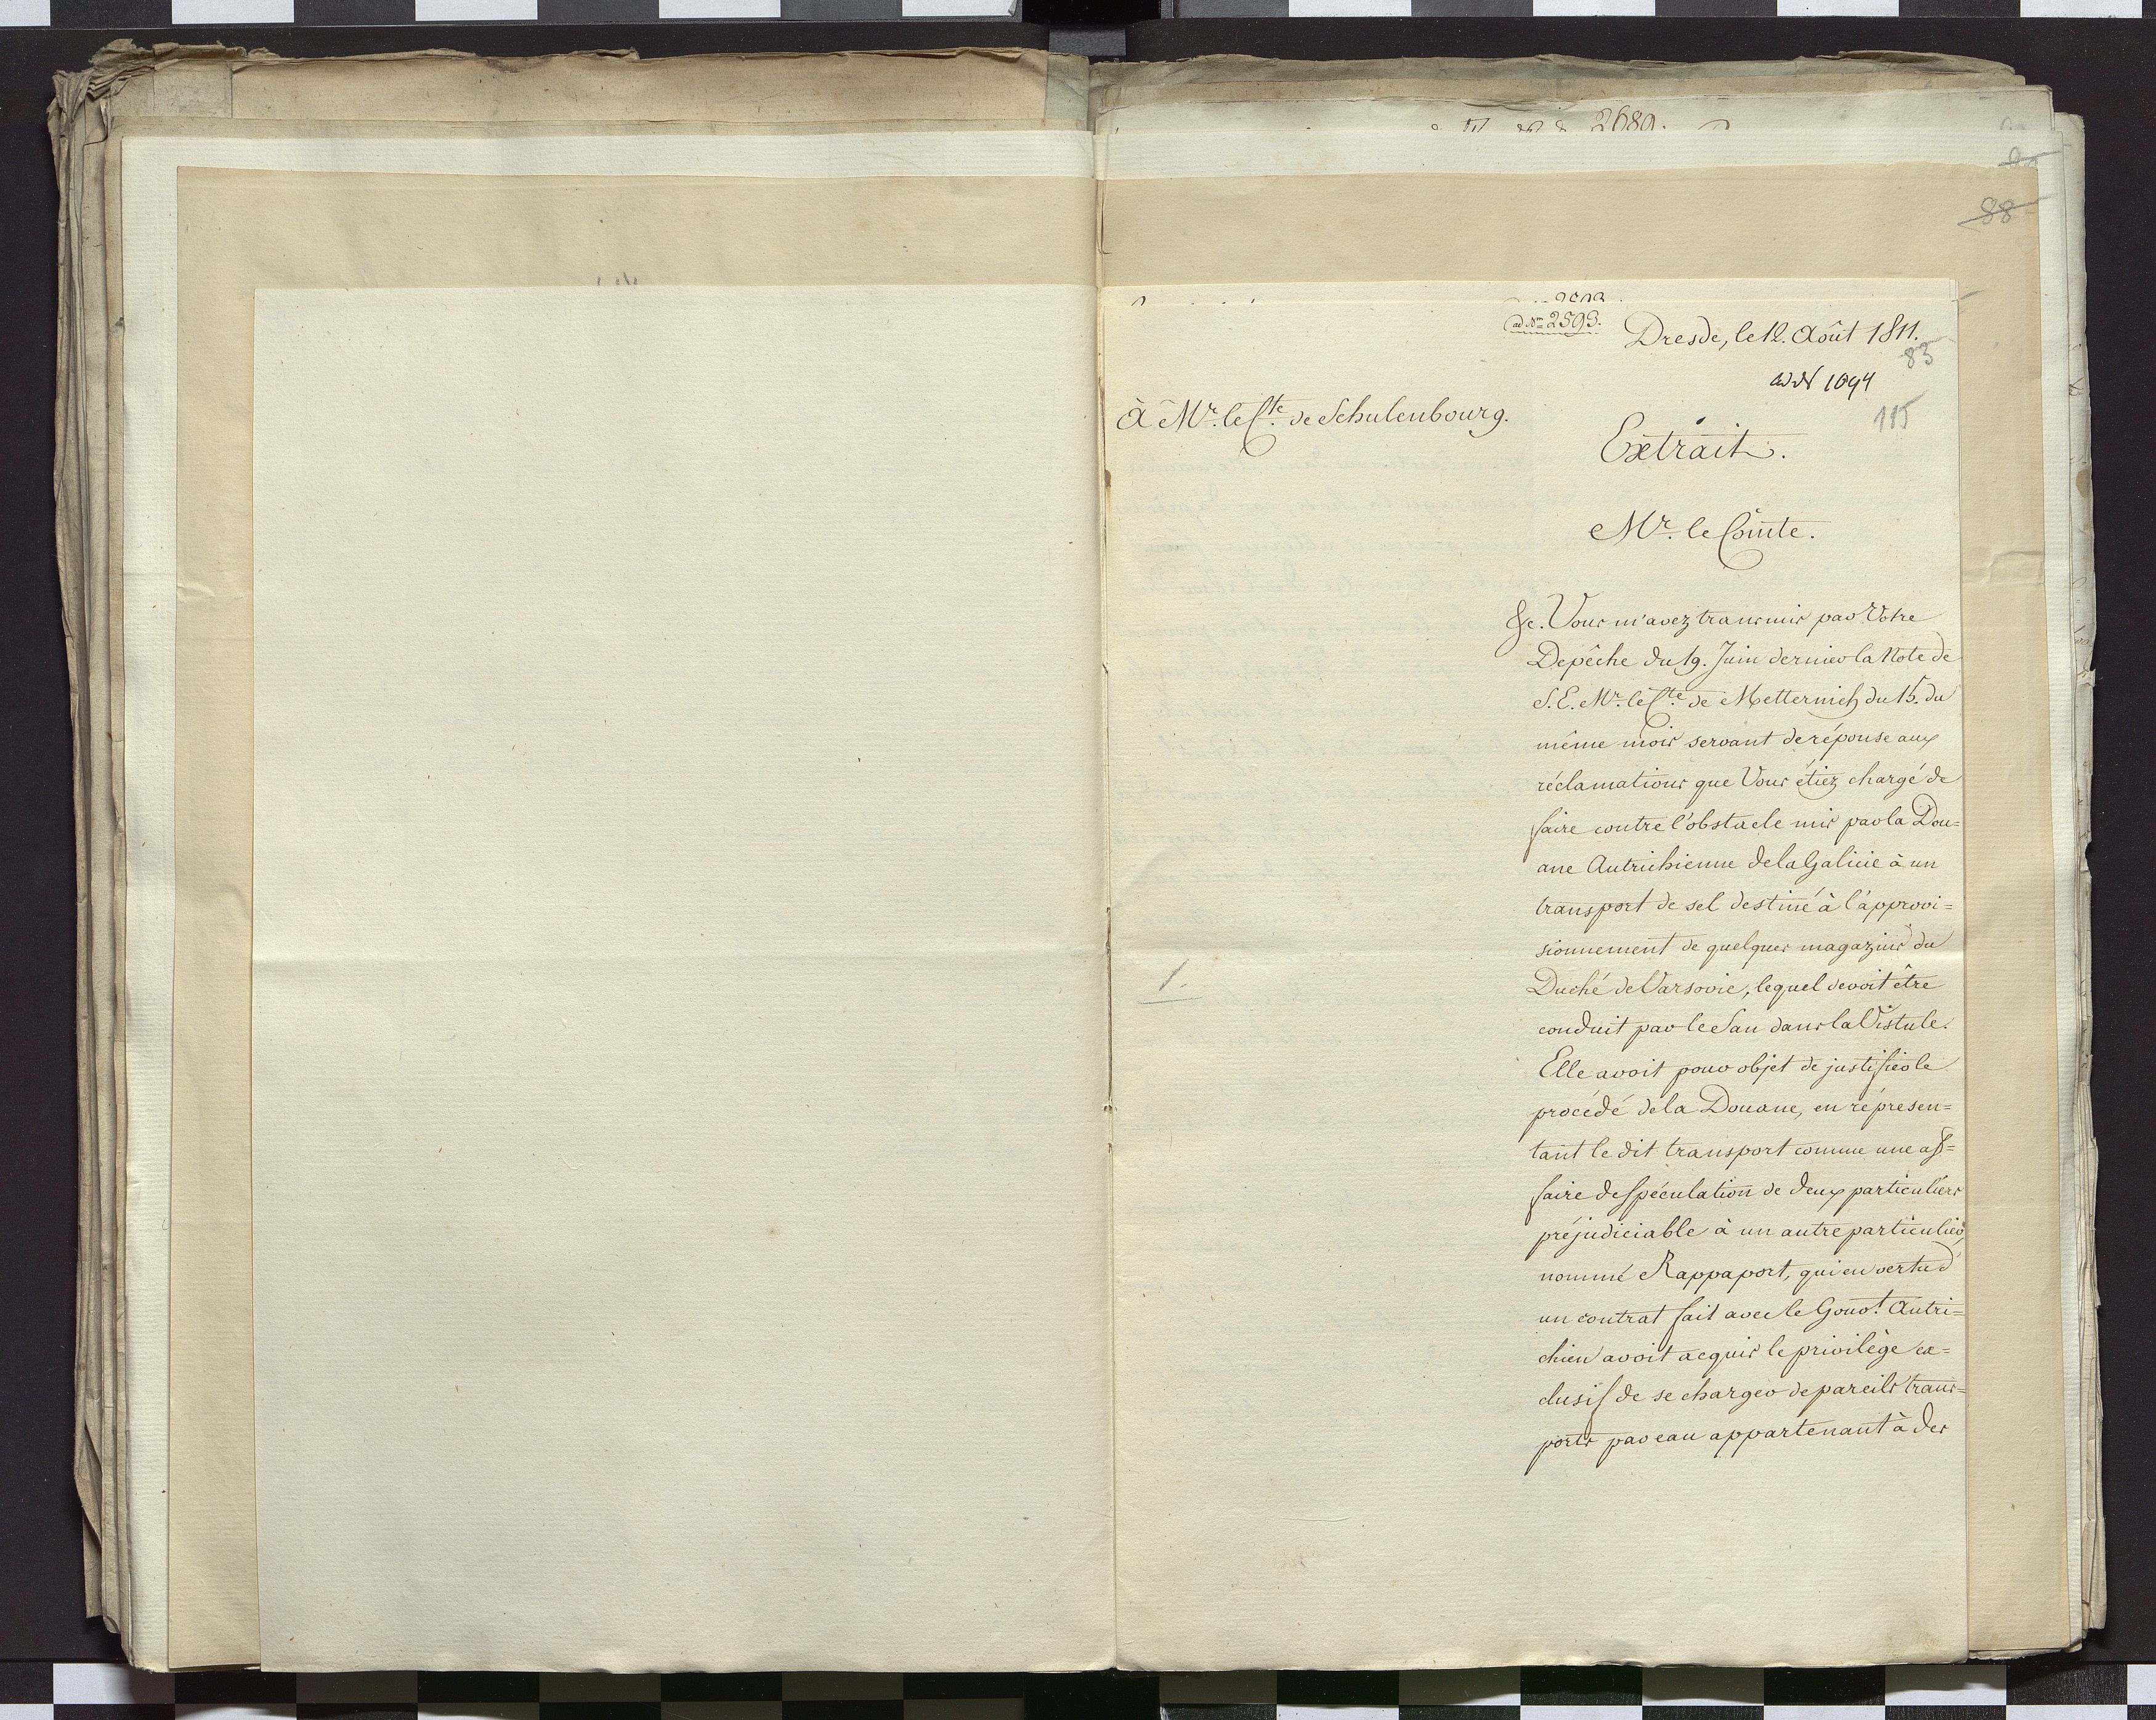 2680.
88
ad Nm 2593.
Dresde, le 12. Août 1811.
83
ad N 1094
115
À Mr. le Cte. de Schulenbourg.
Extrait.
Mr. le Comte.
&c. Vous m'avez transmis par Votre
Depêche du 19. Juin dernier la Note de
S.E. Mr. le Cte. de Metternich du 15. du
même mois servant de réponse aux
réclamations que Vous étiez chargé de
faire contre l'obstacle mis par la Dou=
ane Autrichienne de la Galicie à un
transport de sel destiné à l'approvi=
sionnement de quelques magazins du
Duché de Varsovie, lequel devoit être
conduit par le San dans la Vistule.
Elle avoit pour objet de justifier le
procédé de la Douane, en répresen=
tant le dit transport comme une af=
faire de spéculation de deux particuliers
préjudiciable à un autre particulier,
nommé Rappaport, qui en vertu d'
un contrat fait avec le Gouvt. Autri=
chien avoit acquis le privilège ex=
clusif de se charger de pareils trans=
ports par eau appartenant à des
1.